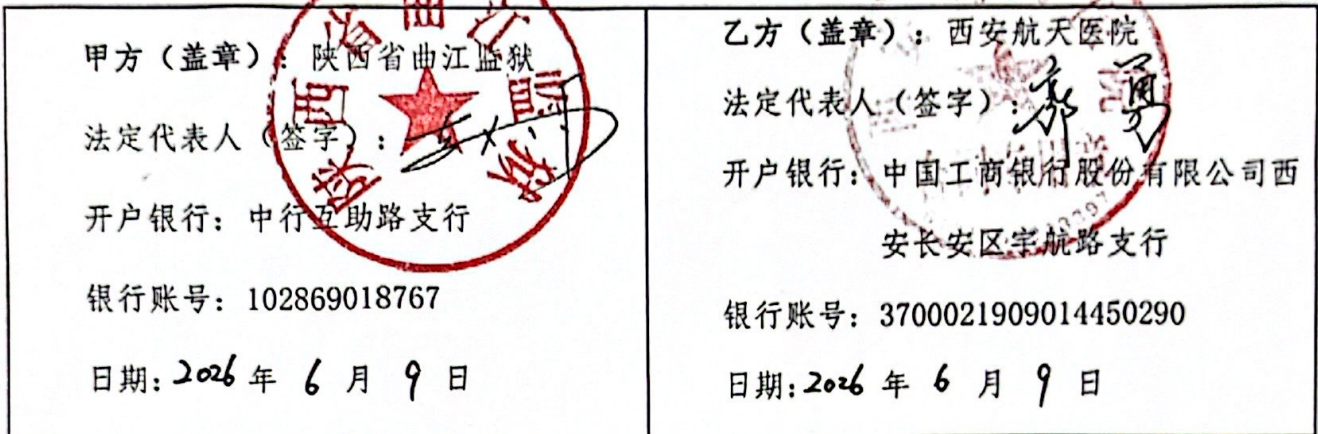 甲方（盖章）：陕西省曲江监狱
法定代表人（签字）：
开户银行：中行互助路支行
银行账号：102869018767
日期：2026 年 6 月 9 日
乙方（盖章）：西安航天医院
法定代表人（签字）：郭勇
开户银行：中国工商银行股份有限公司西
安长安区宇航路支行
银行账号：3700021909014450290
日期：2026 年 6 月 9 日
陕西省曲江监狱